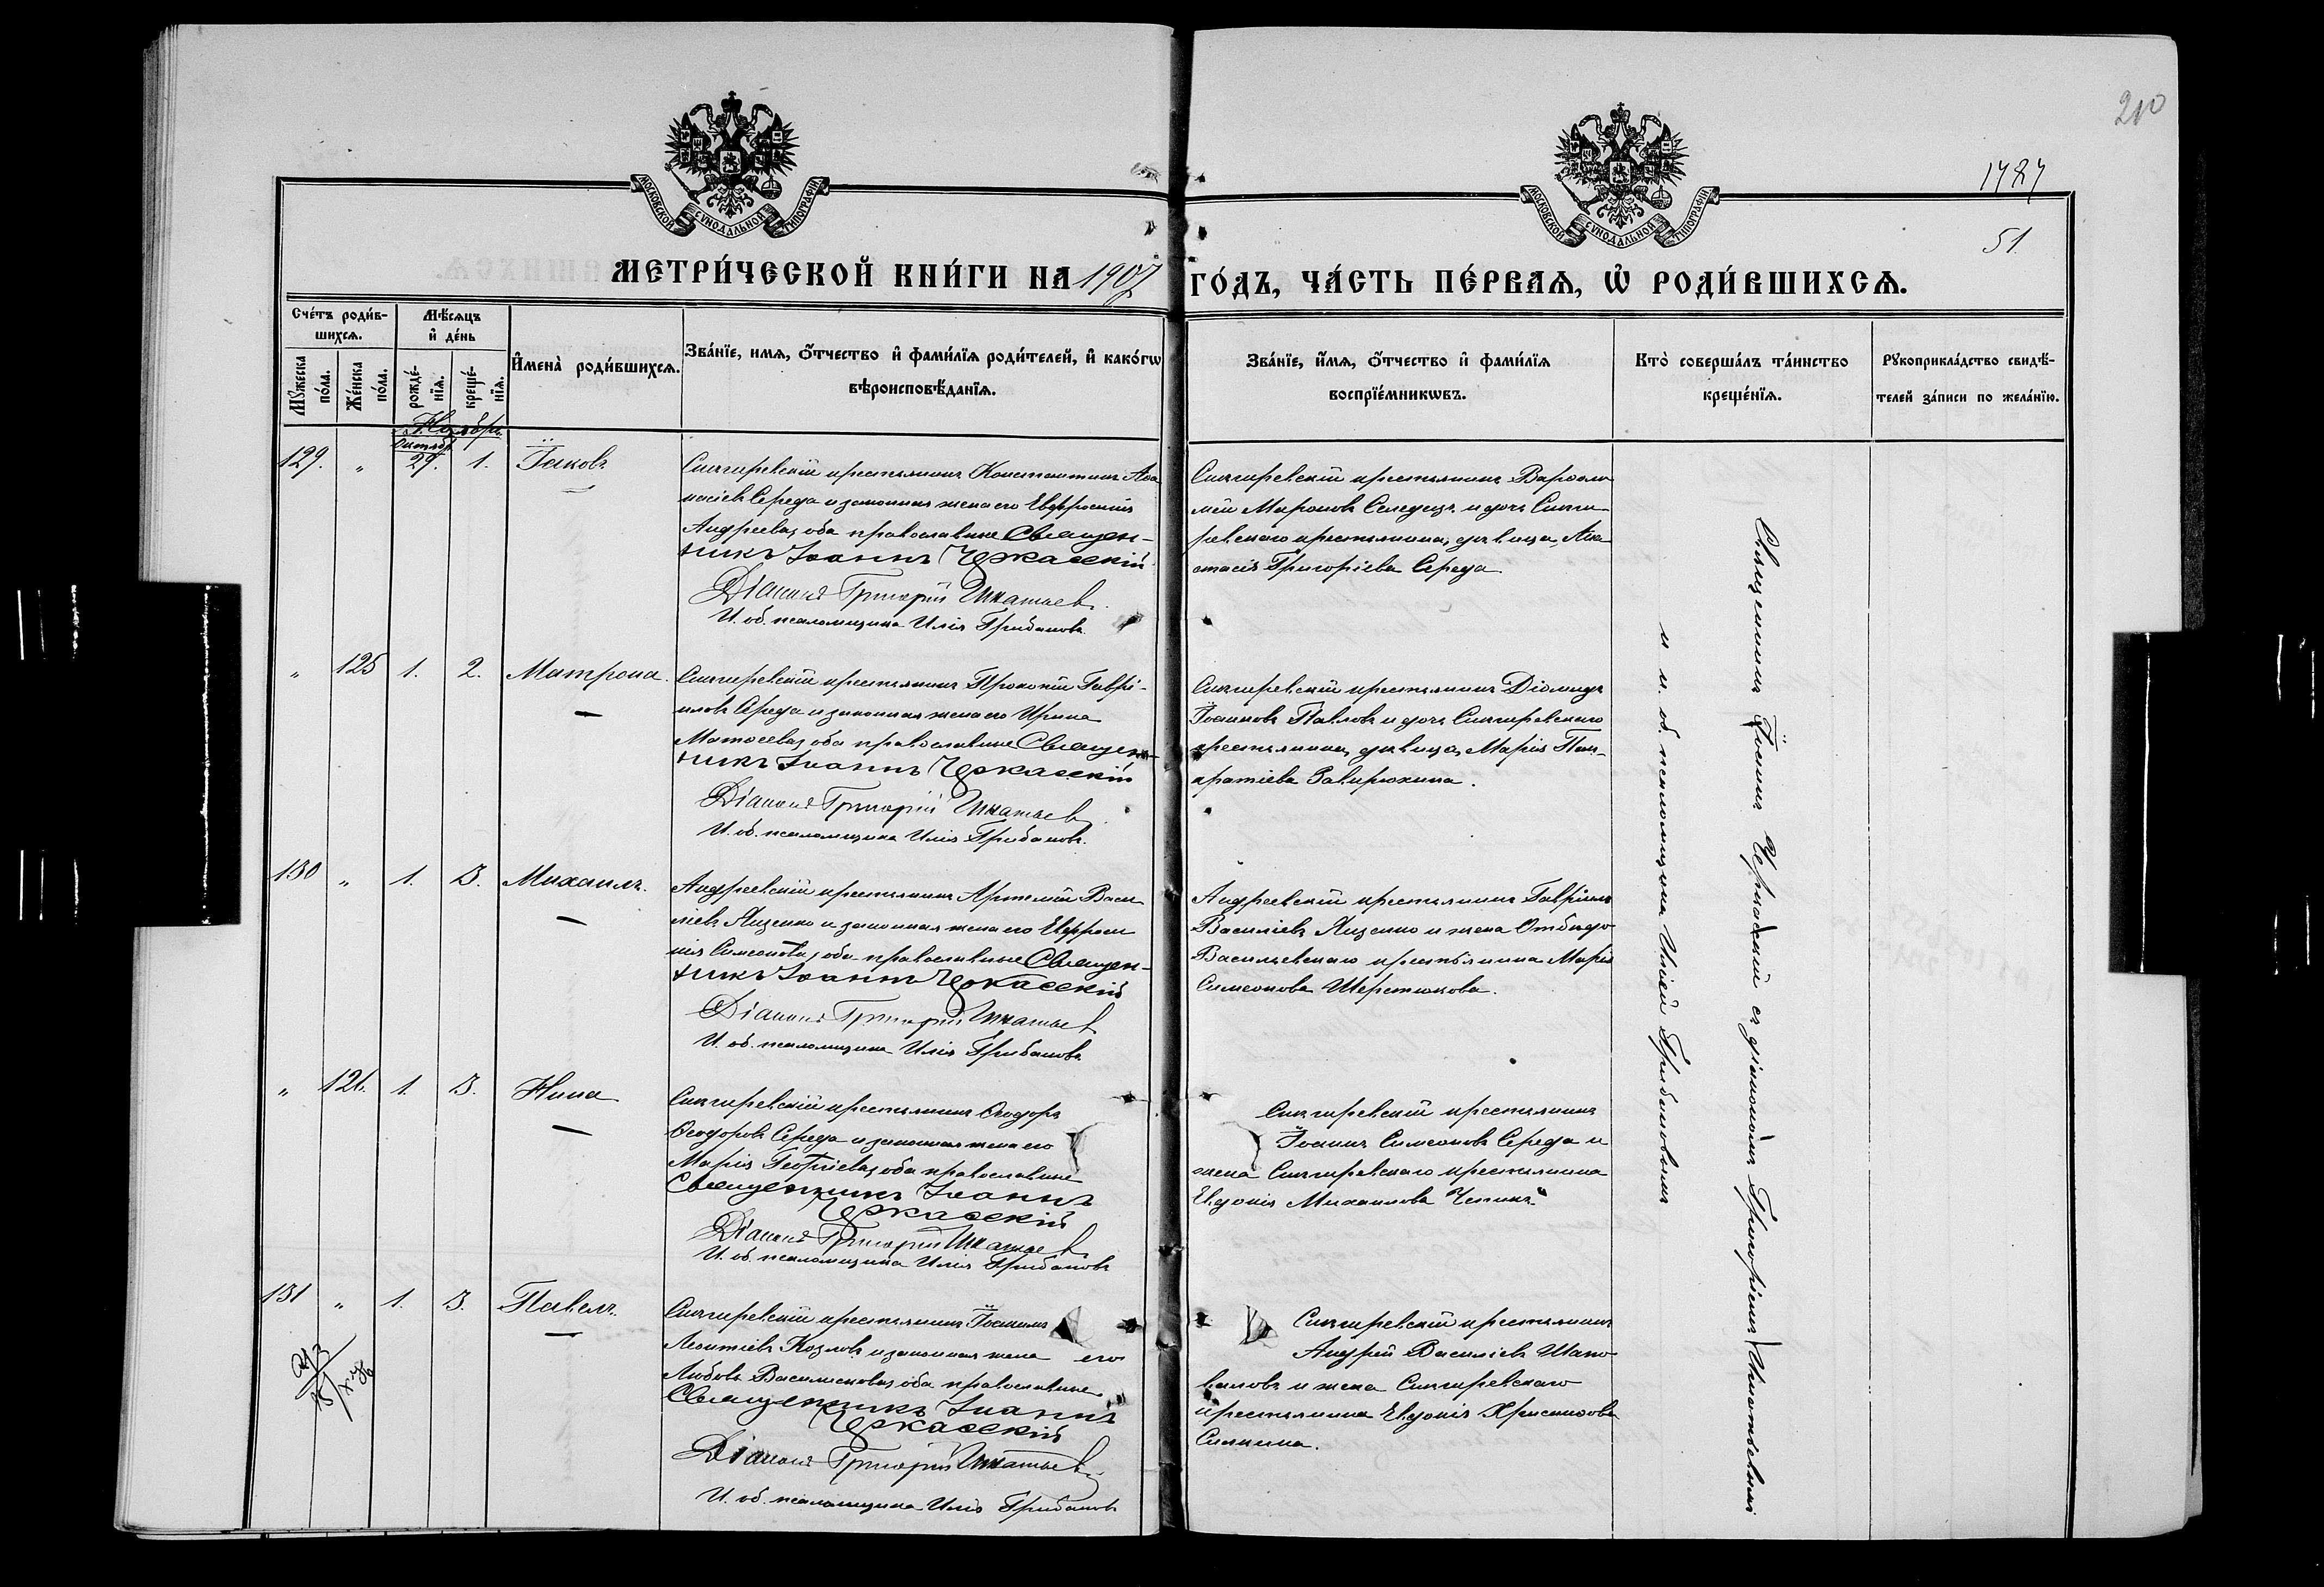 210
1727
51.
МОСКОВСКОЙ СУНОДАЛЬНОЙ ТИПОГРАФІИ.
МОСКОВСКОЙ СУНОДАЛЬНОЙ ТИПОГРАФІИ.
МЕТРИ́ЧЕСКОЙ КНИ́ГИ НА 1907 ГО́ДЪ, ЧА́СТЬ ПЕ́РВАѦ, Ѡ҆ РОДИ́ВШИХСѦ.
Сче́тъ роди́в-
шихсѧ.
Мꙋ́жеска по́ла.
Же́нска по́ла.
Мѣ́сѧцъ
и҆ де́нь
рожде́-
нїѧ.
креще́-
нїѧ.
И҆мена̀ роди́вшихсѧ.
Зва́нїе, имѧ, ѻ҆́тчество и҆ фами́лїѧ роди́телей, и҆ како́гѡ
вѣроисповѣ́данїѧ.
Зва́нїе, и҆́мѧ, ѻ҆́тчество и҆ фами́лїѧ
воспрїе́мникѡвъ.
Кто̀ соверша́лъ та́инство
креще́нїѧ.
Рꙋкоприкла́дство свидѣ́-
телей за́писи по жела́нїю.
Ноябрь
Октябр.
129. „ 29. 1. Іаковъ
Снигиревскій крестьянинъ Константинъ Аѳа-
насіевъ Середа и законная жена его Евфросинія
Андреева, оба православные Священ-
никъ Іоаннъ Черкасскій
Діаконъ Григорій Игнатьев.
И. об. псаломщика Илія Грибановъ
Снигиревскій крестьянинъ Варѳоло-
мей Мироновъ Селедецъ и дочь Сниги-
ревскаго крестьянина, дѣвица, Ана-
стасія Григоріева Середа.
„ 125 1. 2. Матрона.
Снигиревскій крестьянинъ Прокопій Гаврі-
иловъ Середа и законная жена его Ирина
Матѳеева, оба православные Священ-
никъ Іоаннъ Черкасскій
Діаконъ Григорій Игнатьев
И. об. псаломщика Илія Грибановъ.
Снигиревскій крестьянинъ Діомидъ
Іоанновъ Павловъ и дочь Снигиревскаго
крестьянина, дѣвица, Марія Пан-
кратіева Завирюхина.
130 „ 1. 3. Михаилъ.
Андреевскій крестьянинъ Артемій Васи-
ліевъ Яценко и законная жена его Евфроси-
нія Симеонова, оба православные Священ-
никъ Іоаннъ Черкасскій
Діаконъ Григорій Игнатьев
И. об. псаломщика Илія Грибановъ
Андреевскій крестьянинъ Гавріилъ
Василіевъ Яценко и жена
Васильевскаго крестьянина Марія
Симеонова Шерстюкова.
„ 126. 1. 3. Нина
Снигиревскій крестьянинъ Ѳеодоръ
Ѳеодоровъ Середа и законная жена его
Марія Георгіева, оба православные
Священникъ Іоаннъ
Черкасскій
Діаконъ Григорій Игнатьев
И. об. псаломщика Илія Грибановъ
Снигиревскій крестьянинъ
Іоаннъ Симеоновъ Середа и
жена Снигиревскаго крестьянина
Евдокія Михаилова
131 „ 1. 3. Павелъ.
Снигиревскій крестьянинъ
Леонтіевъ Козловъ и законная жена его
Любовь Василіскова, оба православные
Священникъ Іоаннъ
Черкасскій
Діаконъ Григорій Игнатьев
И. об. псаломщика Илія Грибановъ
Снигиревскій крестьянинъ
Андрей Василіевъ Шапо-
валовъ и жена Снигиревскаго
крестьянина Евдокія Хрисанѳова
Священникъ Іоаннъ Черкасскій съ діакономъ Григоріемъ Игнатьевымъ
и и. об. псаломщика Иліей Грибановымъ